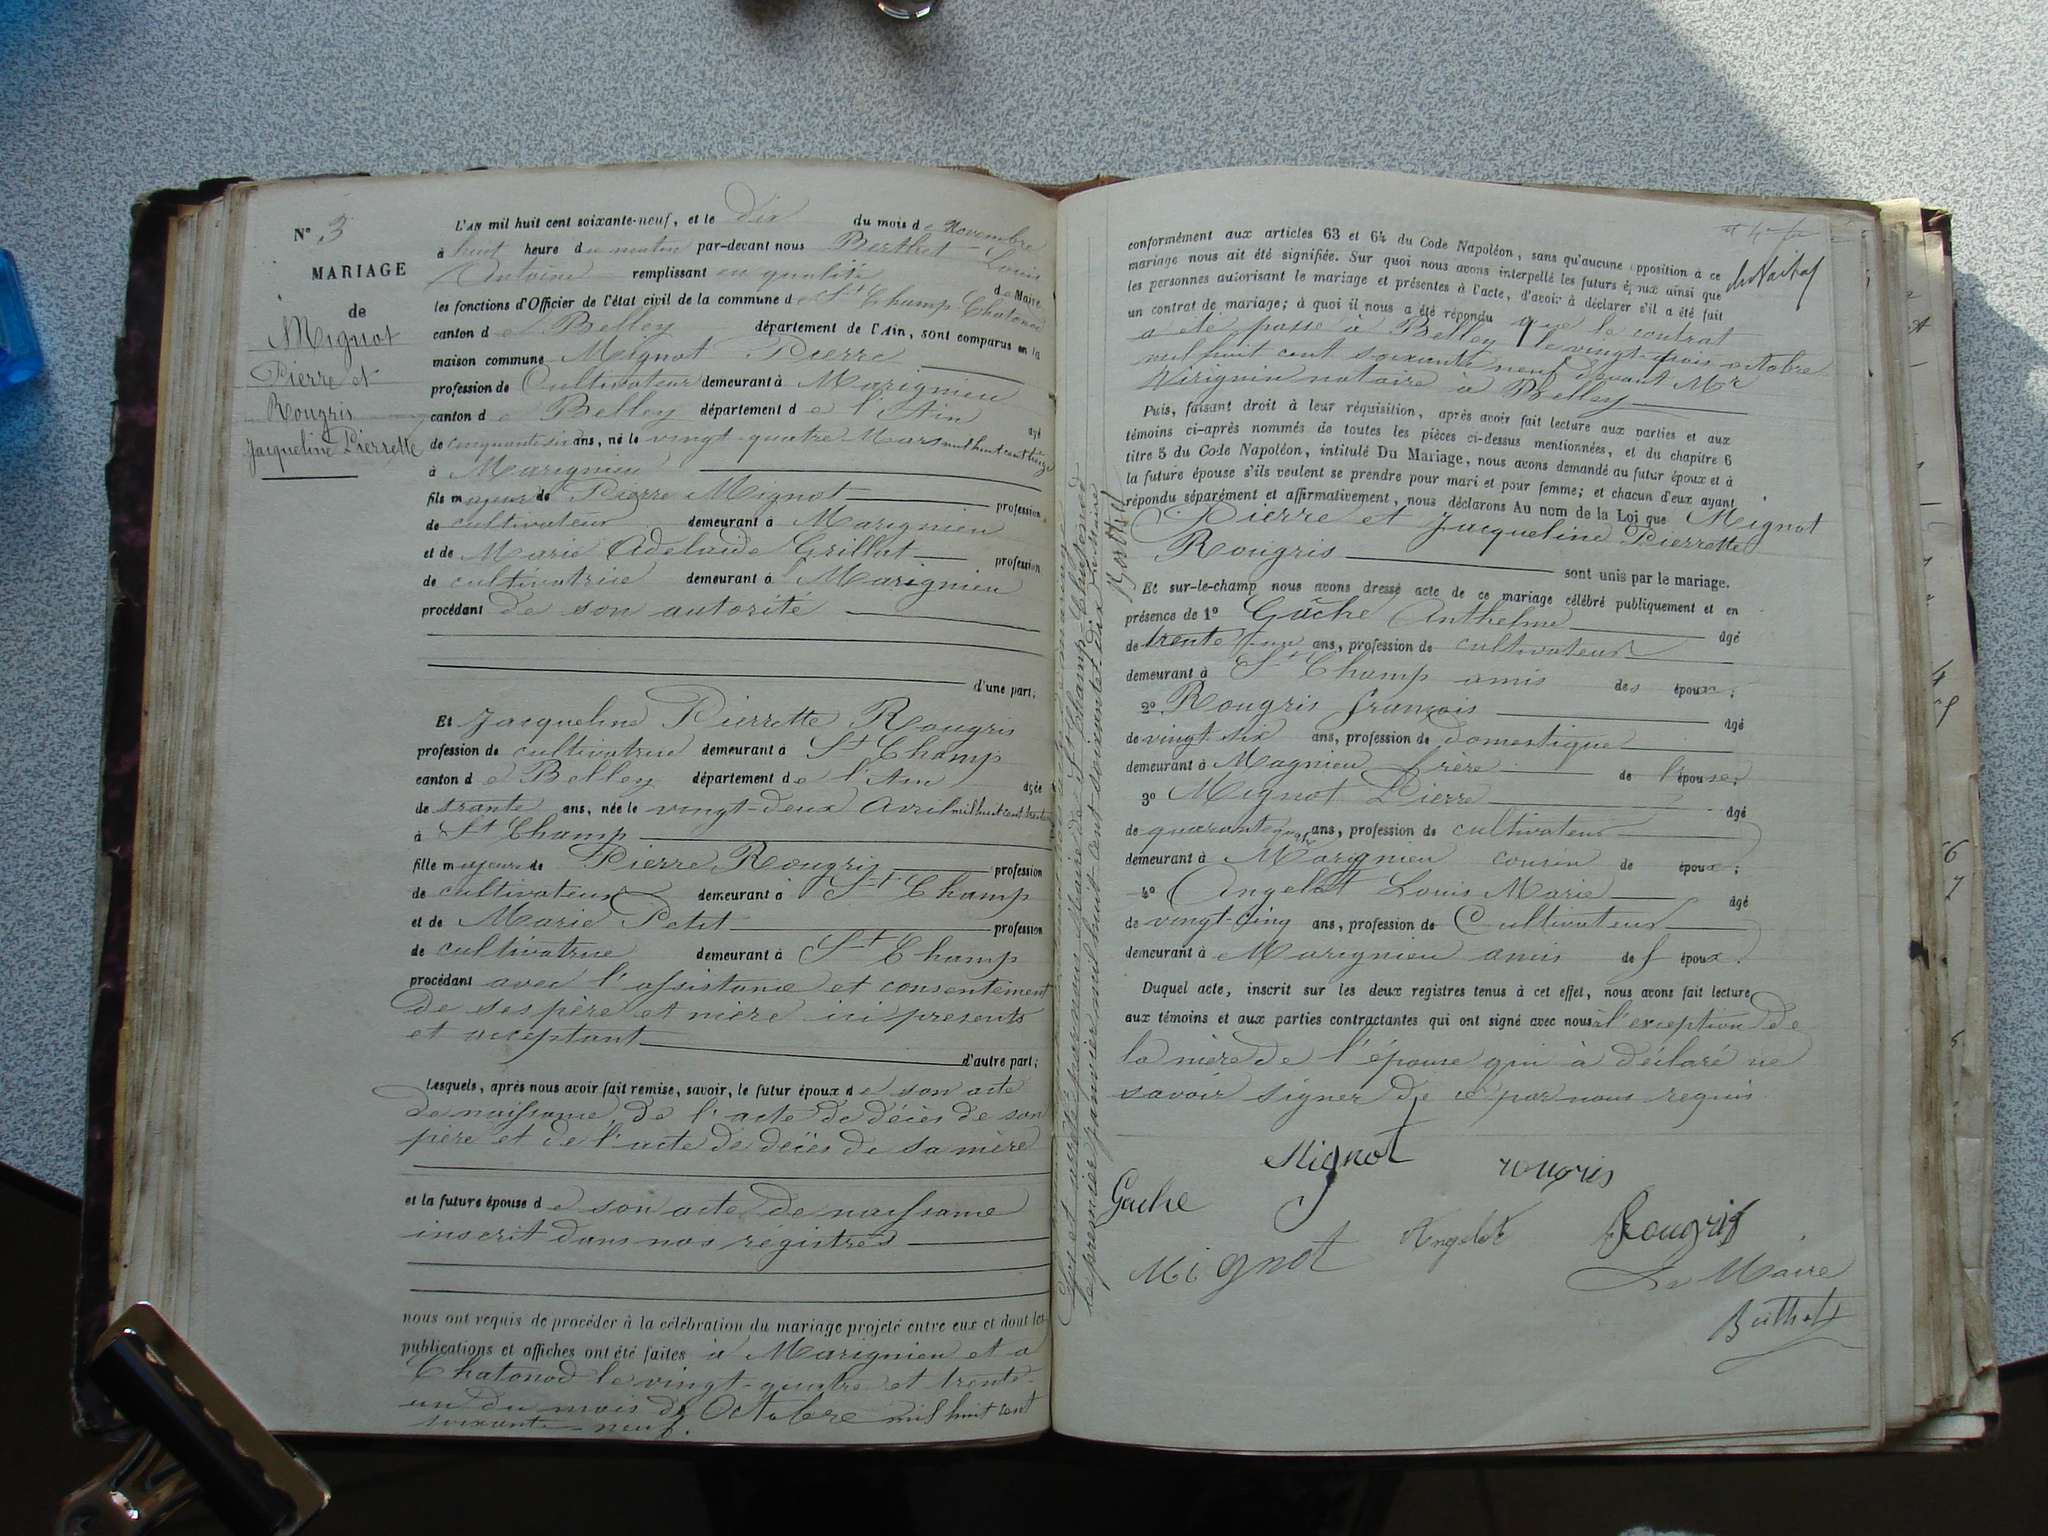 N° 3
MARIAGE
de
Mignot
Pierre et
Rougris
Jacqueline Pierrette
L'AN mil huit cent soixante-neuf, et le dix du mois de Novembre
à huit heure du matin par-devant nous Berthet Louis
Antoine remplissant en qualité de Maire
les fonctions d'Officier de l'état civil de la commune de St Champ-Chatonod
canton de Belley département de l'Ain, sont comparus en la
maison commune Mignot Pierre
profession de Cultivateur demeurant à Marignieu
canton de Belley département de l'Ain âgé
de cinquante six ans, né le vingt-quatre Mars mil huit cent treize
à Marignieu
fils majeur de Pierre Mignot profession
de cultivateur demeurant à Marignieu
et de Marie Adelaide Grillat profession
de cultivatrice demeurant à Marignieu
procédant de son autorité
d'une part;
Et Jacqueline Pierrette Rougris
profession de cultivatrice demeurant à St Champ
canton de Belley département de l'Ain âgée
de trante ans, née le vingt-deux Avril mil huit cent trente
à St Champ
fille majeure de Pierre Rougris profession
de cultivateur demeurant à St Champ
et de Marie Petit profession
de cultivatrice demeurant à St Champ
procédant avec l'assistance et consentement
de ses père et mère ici présents
et acceptant
d'autre part;
Lesquels, après nous avoir fait remise, savoir, le futur époux de son acte
de naissance, de l'acte de décès de son
père et de l'acte de décès de sa mère
et la future épouse de son acte de naissance
inscrit dans nos régistres
nous ont requis de procéder à la célébration du mariage projeté entre eux et dont les
publications et affiches ont été faites à Marignieu et a
Chatonod le vingt-quatre et trente-
un du mois de Octobre mil huit cent
soixante-neuf.
conformément aux articles 63 et 64 du Code Napoléon, sans qu'aucune opposition à ce
mariage nous ait été signifiée. Sur quoi nous avons interpellé les futurs époux ainsi que
les personnes autorisant le mariage et présentes à l'acte, d'avoir à déclarer s'il a été fait
un contrat de mariage; à quoi il nous a été répondu que le contrat
a été passé à Belley le vingt-trois octobre
mil huit cent soixante neuf devant Mr
Virignin notaire à Belley
Puis, faisant droit à leur réquisition, après avoir fait lecture aux parties et aux
témoins ci-après nommés de toutes les pièces ci-dessus mentionnées, et du chapitre 6
titre 5 du Code Napoléon, intitulé Du Mariage, nous avons demandé au futur époux et à
la future épouse s'ils veulent se prendre pour mari et pour femme; et chacun d'eux ayant
répondu séparément et affirmativement, nous déclarons Au nom de la Loi que Mignot
Pierre et Jacqueline Pierrette
Rougris
sont unis par le mariage.
Et sur-le-champ nous avons dressé acte de ce mariage célébré publiquement et en
présence de 1° Gâche Anthelme âgé
de trente un ans, profession de cultivateur
demeurant à St Champ amis des époux;
2° Rougris françois âgé
de vingt six ans, profession de domestique
demeurant à Magnieu frère de l'épouse;
3° Mignot Pierre âgé
de quarante quatre ans, profession de cultivateur
demeurant à Marignieu cousin de époux;
4° Angelot Louis Marie âgé
de vingt-cinq ans, profession de Cultivateur
demeurant à Marignieu amis de époux.
Duquel acte, inscrit sur les deux registres tenus à cet effet, nous avons fait lecture
aux témoins et aux parties contractantes qui ont signé avec nous à l'exception de
la mère de l'épouse qui à déclaré ne
savoir signer de ce par nous requis
Mignot rougris
Gache
Mignot Angelot Rougris
Le Maire
Berthet
Maire de St Champ-Chatonod
le premier janvier mil huit cent soixante et dix
Berthet